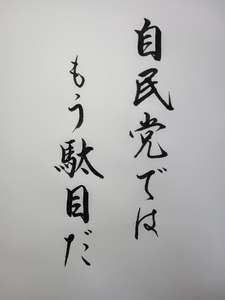 自民党では
もう駄目だ